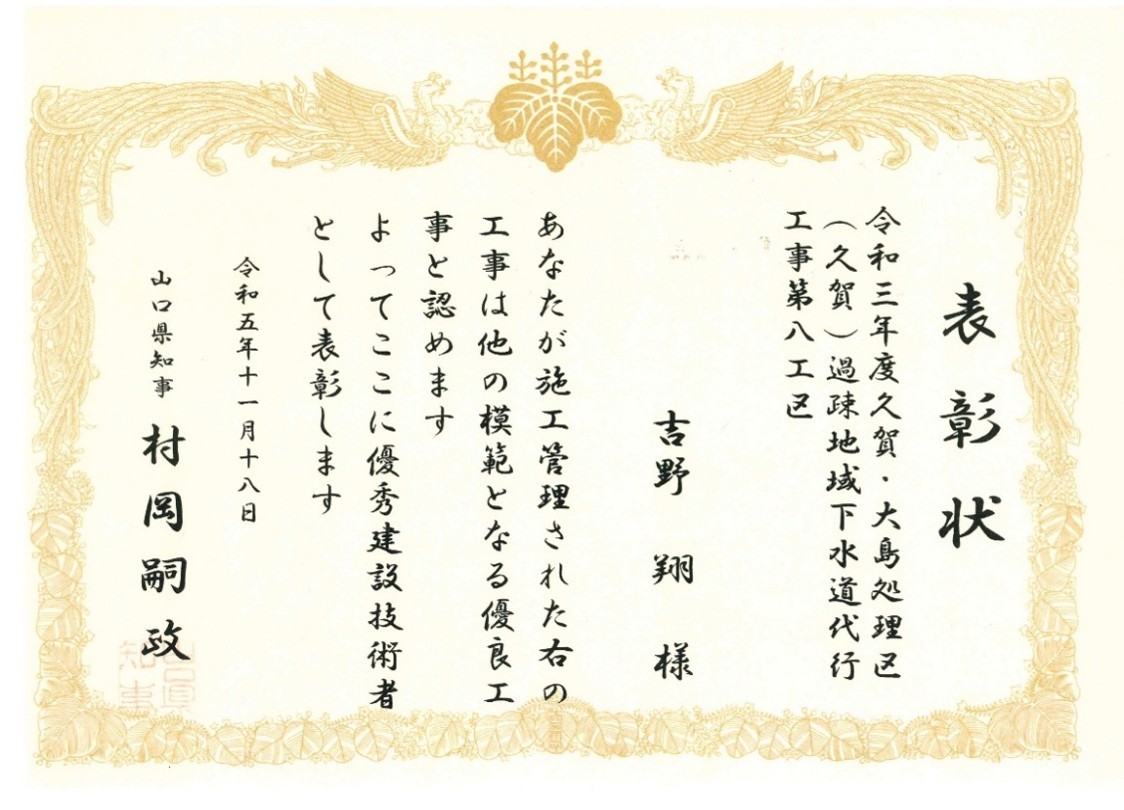 表彰状
令和三年度久賀・大島処理区
（久賀）過疎地域下水道代行
工事第八工区
吉野 翔 様
あなたが施工管理された右の
工事は他の模範となる優良工
事と認めます
よってここに優秀建設技術者
として表彰します
令和五年十一月十八日
山口県知事 村岡嗣政